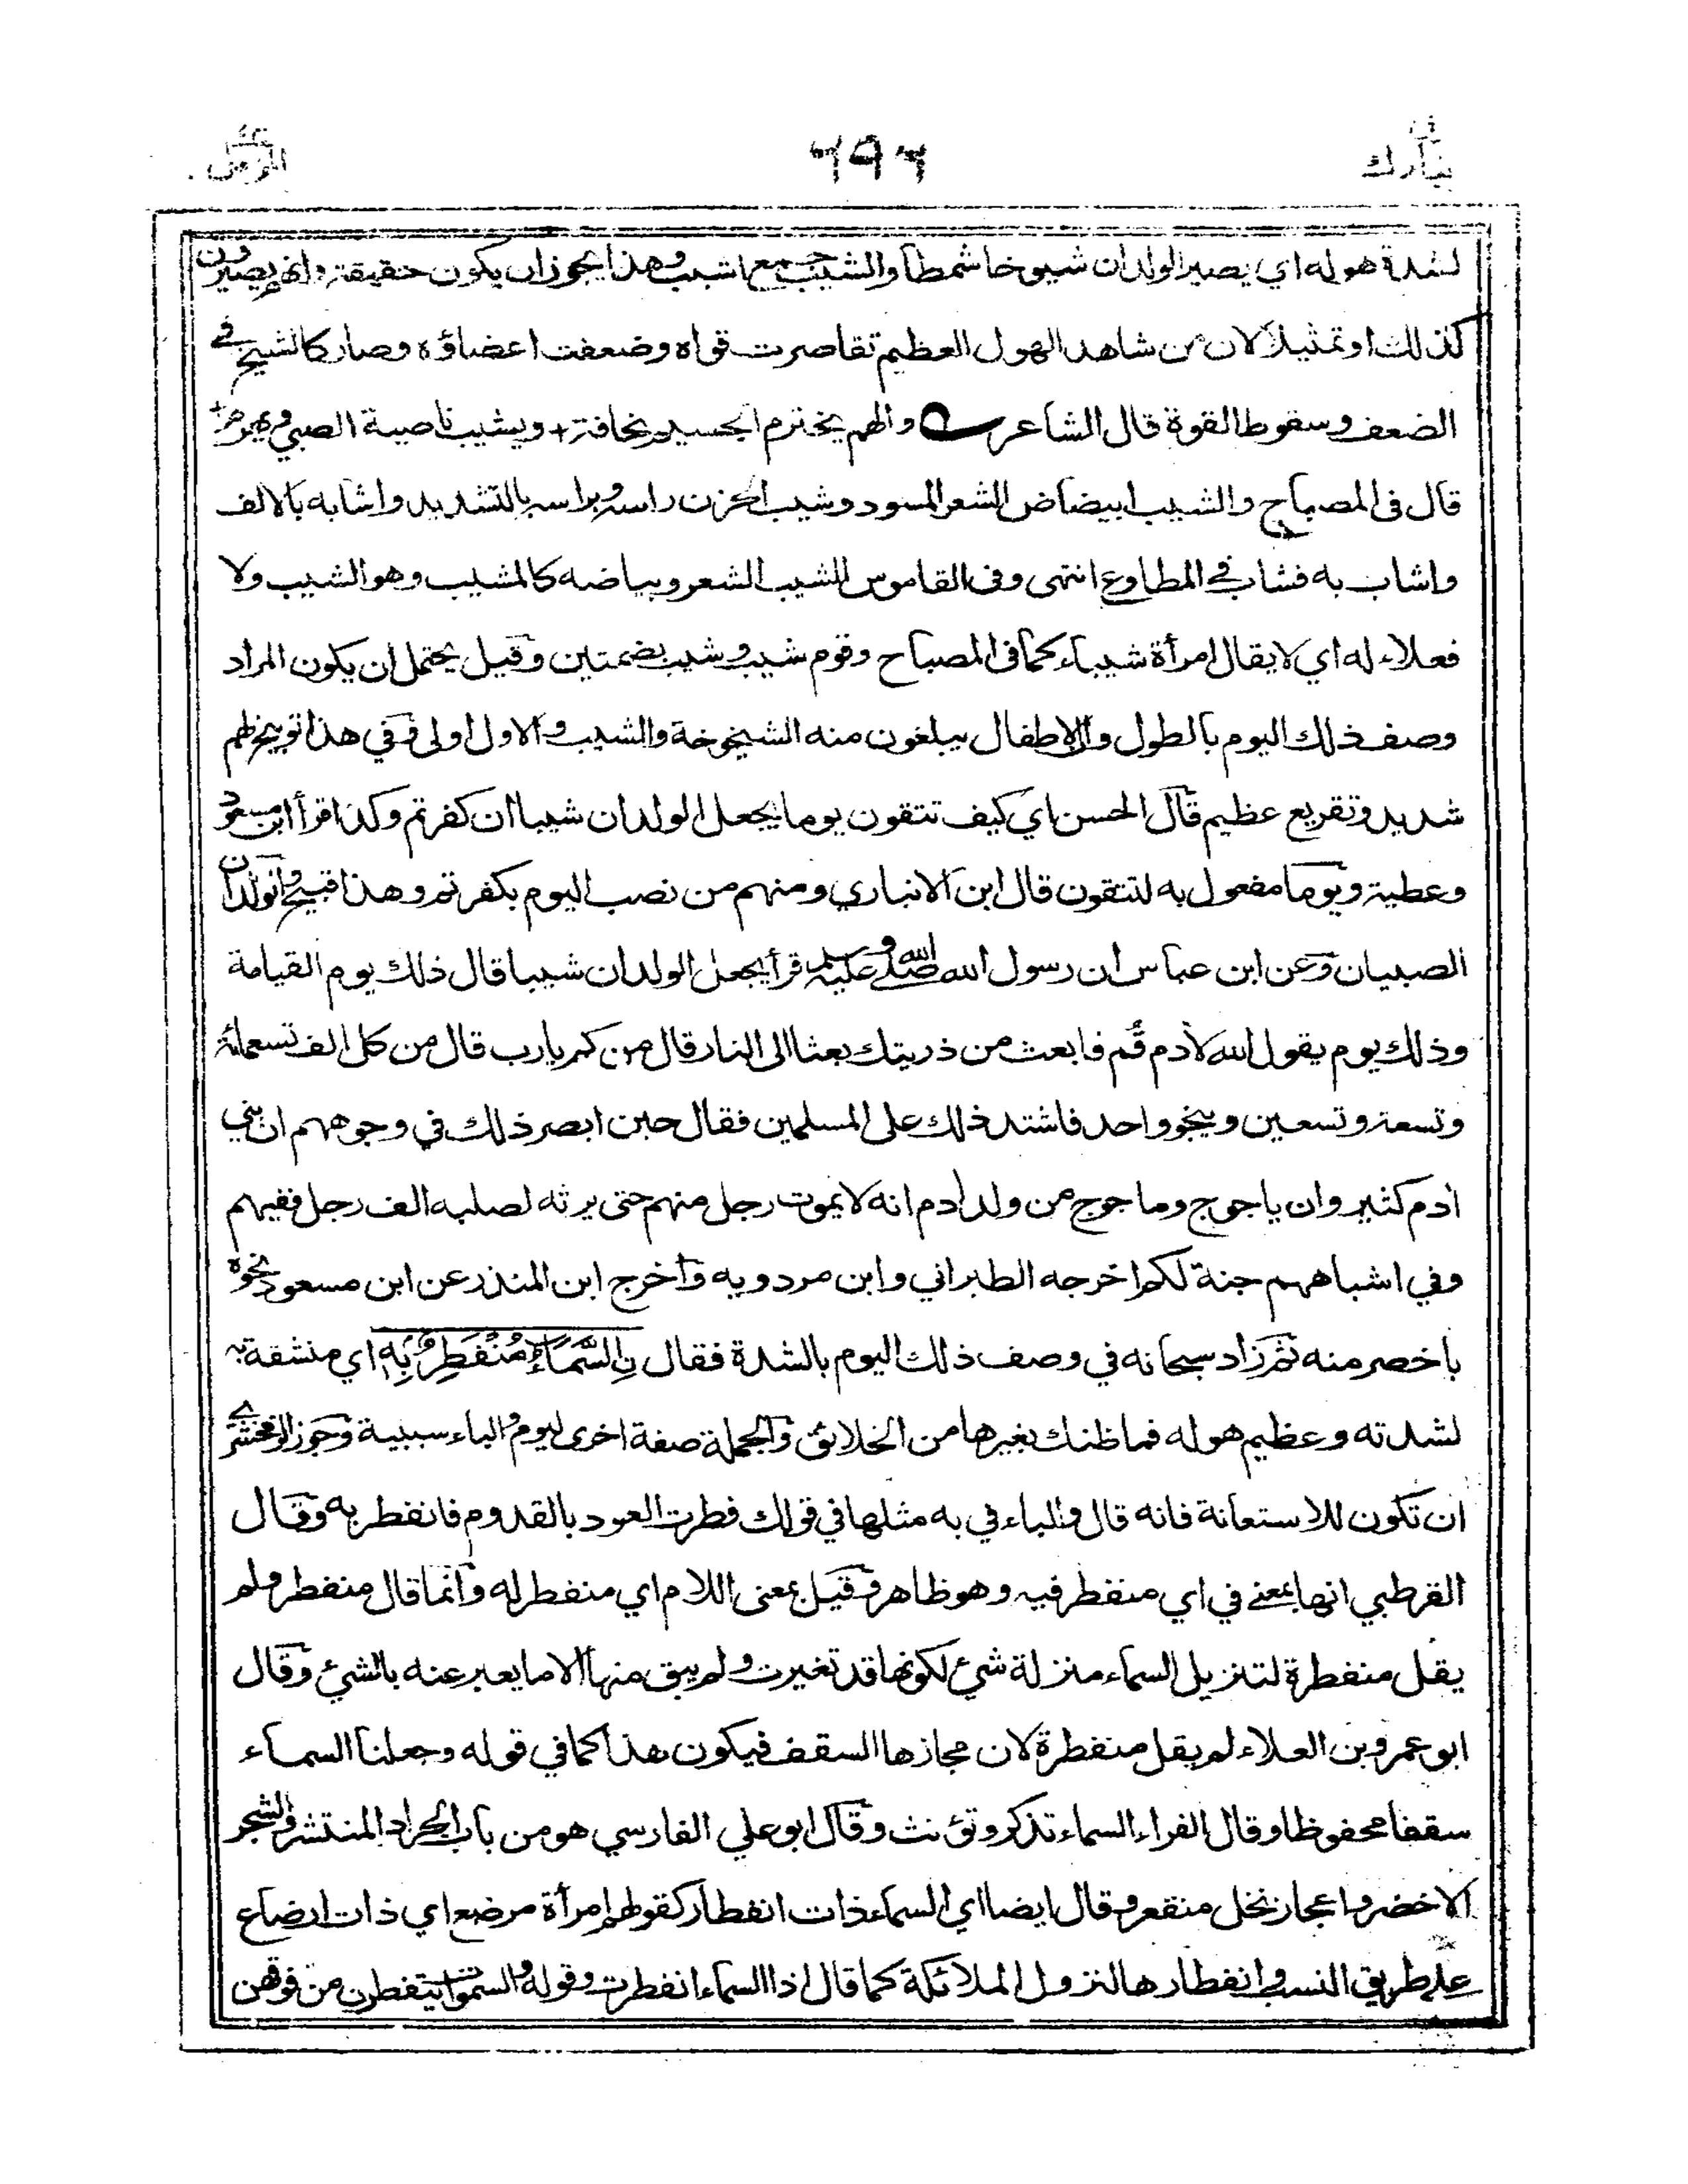 تبارك ٢٩
المزمل
لشدة هوله اي يصير الولدان شيوخا شمطا والشيب جمع اشيب وهذا يجوز ان يكون حقيقة وانهم يصيرون
كذلك او تمثيلا لان من شاهد الهول العظيم تقاصرت قواه وضعفت اعضاؤه وصار كالشيخ في
الضعف وسقوط القوة قال الشاعر والهم يخترم الجسيم نحافة + ويشيب ناصية الصبي ويهرم +
قال في المصباح والشيب ابيضاض الشعر المسود وشيب الحزن راسه وبراسه بالتشديد واشابه بالالف
واشاب به فشاب في المطاوع انتهى وفي القاموس الشيب الشعر وبياضه كالمشيب وهو الشيب ولا
فعلاء له اي لا يقال امرأة شيباء كما في المصباح وقوم شيب وشيب بضمتين وقيل يحتمل ان يكون المراد
وصف ذلك اليوم بالطول والاطفال يبلغون منه الشيخوخة والشيب والاول اولى وفي هذا توبيخ لهم
شديد وتقريع عظيم قال الحسن اي كيف تتقون يوما يجعل الولدان شيبا ان كفرتم وكذا قرأ ابن مسعود
وعطية ويوما مفعول به لتتقون قال ابن الانباري ومنهم من نصب اليوم بكفرتم وهذا قبيح والولدان
الصبيان وعن ابن عباس ان رسول الله صلى الله عليه وسلم قرأ يجعل الولدان شيبا قال ذلك يوم القيامة
وذلك يوم يقول الله لأدم قُم فابعث من ذريتك بعثا الى النار قال من كم يا رب قال من كل الف تسعمائة
وتسعة وتسعين وينجو واحد فاشتد ذلك على المسلمين فقال حين ابصر ذلك في وجوههم ان بني
أدم كثير وان ياجوج وماجوج من ولد أدم انه لا يموت رجل منهم حتى يرثه لصلبه الف رجل ففيهم
وفي اشباههم جنة لكم اخرجه الطبراني وابن مردويه وأخرج ابن المنذر عن ابن مسعود نحوه
باخصر منه ثم زاد سبحانه في وصف ذلك اليوم بالشدة فقال نِالسَّمَآءُ مُنْفَطِرٌ بِهٖ اي منشقة به
لشدته وعظيم هوله فما ظنك بغيرها من الخلائق والجملة صفة اخرى ليوم والباء سببية وجوز الزمخشري
ان تكون للاستعانة فانه قال والباء في به مثلها في قولك فطرت العود بالقدوم فانفطر به وقال
القرطبي انها بمعنى في اي منفطر فيه وهو ظاهر وقيل بمعنى اللام اي منفطر له وانما قال منفطر ولم
يقل منفطرة لتنزيل السماء منزلة شيئ لكونها قد تغيرت ولم يبق منها الا ما يعبر عنه بالشيئ وقال
ابو عمرو بن العلاء لم يقل منفطرة لان مجازها السقف فيكون هذا كما في قوله وجعلنا السماء
سقفا محفوظا وقال الفراء السماء تذكر وتؤنث وقال ابو علي الفارسي هو من باب الجراد المنتشر والشجر
الاخضر واعجاز نخل منقعر وقال ايضا اي السماء ذات انفطار كقولهم امرأة مرضع اي ذات ارضاع
على طريق النسب وانفطارها لنزول الملائكة كما قال اذا السماء انفطرت وقوله والسموات يتفطرن من فوقهن